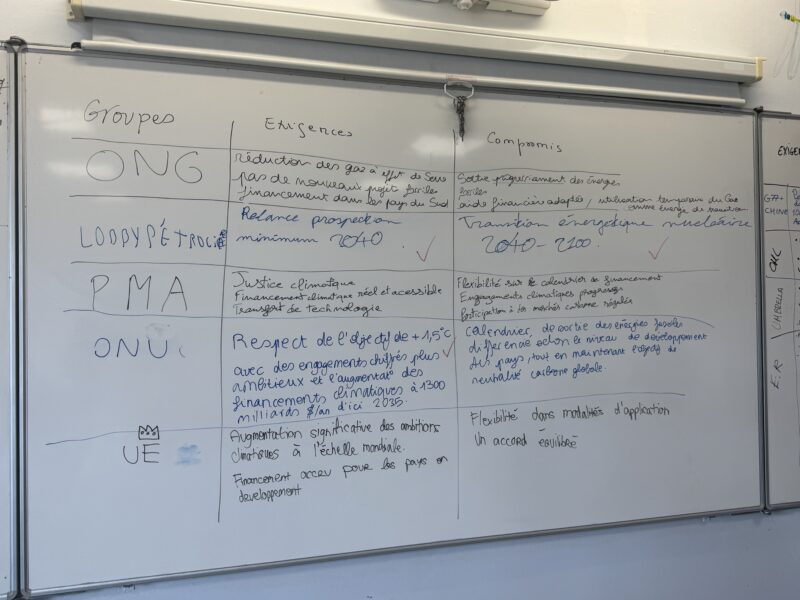 Groupes
Exigences
Compromis
ONG
réduction des gaz à effet de Serre
pas de nouveaux projet fossiles
financement dans les pays du Sud
Sortie progressivement des énergies
fossiles
aide financière adaptés, utilisation temporaire du Gaz
comme énergie de transition
LOBBY PÉTROLIER
Relance prospection
minimum 2040
Transition énergétique nucléaire
2040-2100.
PMA
Justice climatique
Financement climatique réel et acessible
Transfert de technologie
Flexibilité sur le calendrier de financement
Engagements climatiques progressifs
Participation à los marchés carbone régulés
ONU
Respect de l'objectif de +1,5°C
avec des engagements chiffrés plus
ambitieux et l'augmentat° des
financements climatiques à 1300
milliards $/an d'ici 2035.
Calendrier, de sortie des énergies fossiles
différencié selon le niveau de développement
des pays, tout en maintenant l'objectif de
neutralité carbone globale.
UE
Augmentation significative des ambitions
climatiques à l'échelle mondiale.
Financement accru pour les pays en
developpement
Flexibilité dans modalités d'application
Un accord équilibré
G77+
CHINE
UMBRELLA